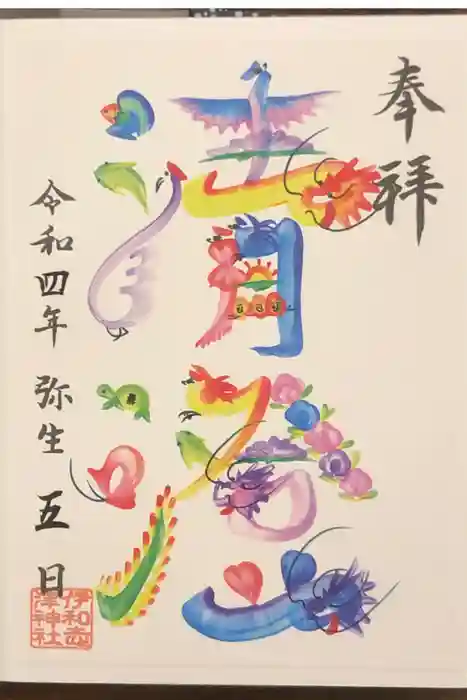 奉拝
清
令和四年 弥生 五日
伊和志
津神社